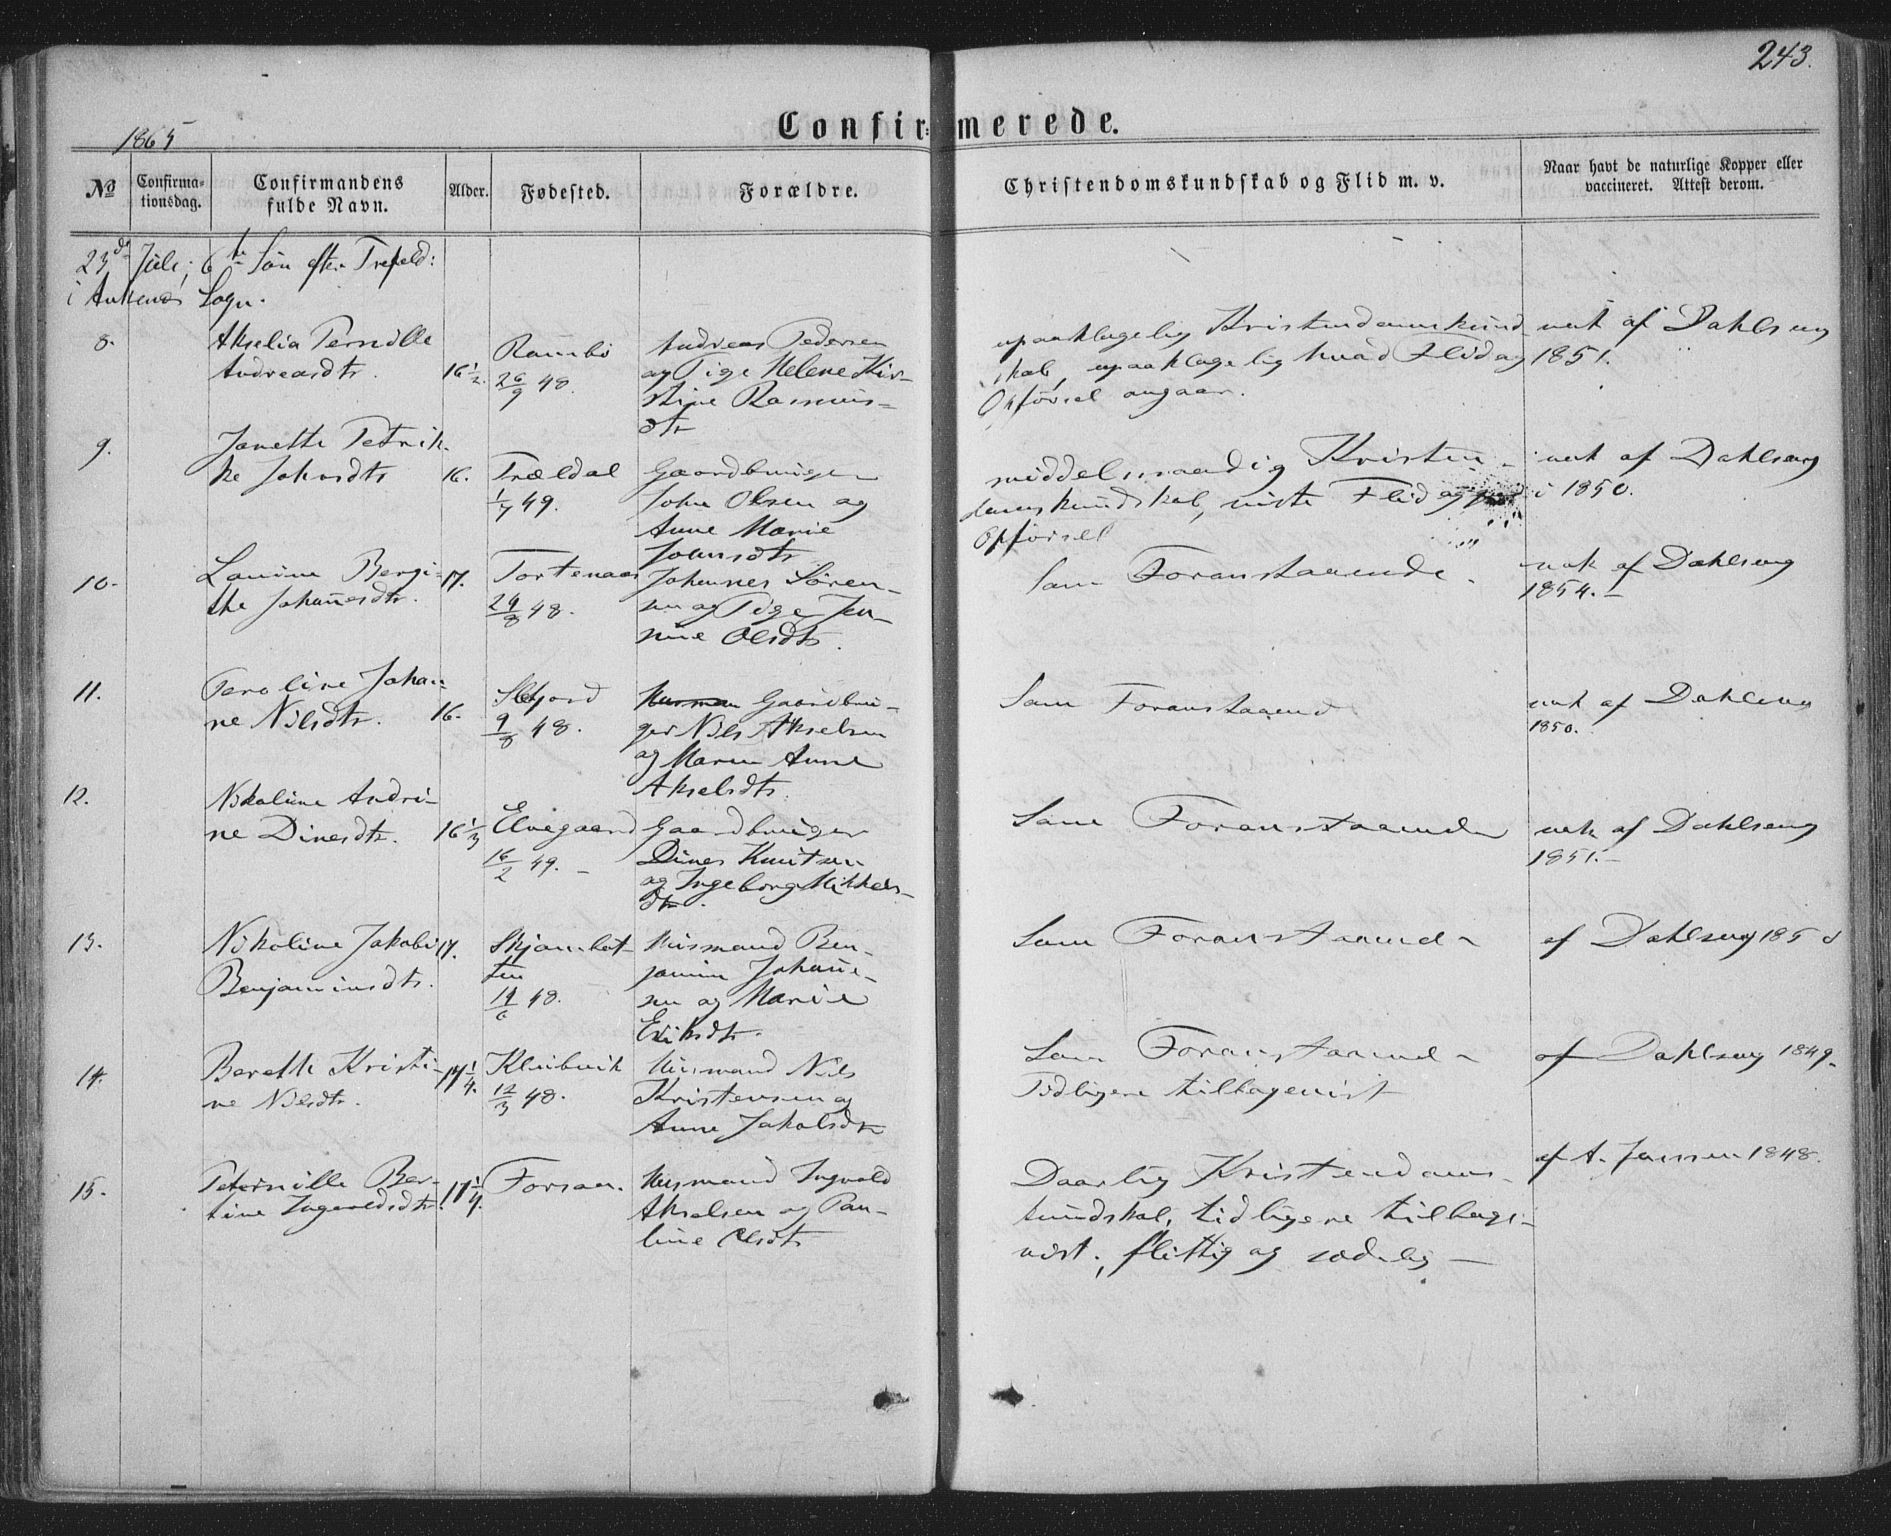 243.
1865
Confirmerede.
№
Confirma-
tionsdag.
Confirmandens
fulde Navn.
Alder.
Fødested.
Forældre.
Christendomskundskab og Flid m. v.
Naar havt de naturlige Kopper eller
vaccineret. Attest derom.
23de Juli, 6te Søn efter Trefold:
i Ankenes Sogn.
8.
Akselia Pernille
Andreasdtr.
16 1/2.
26/9 48.
Andreas Pedersen
og Pige Helene Kir-
stine Rasmus-
dtr
upaaklagelig Kristendomskund
skab, upaaklagelig hvad Flid og
Opførsel angaar.
vak af Dahlseng
1851.
9.
Janette Petrik-
ke Johnsdtr
16.
Trældal
1/7 49.
Gaardbruger
John Olsen og
Anne Marie
middelmaadig Kristen-
domskundskab, Flid og
Opførsel
vak af Dahlseng
i 1850.
10.
Lavine Bergi-
the Johañesdtr.
17.
Tortenaes
29/8 48.
Johannes Sören-
sen og Pige Jen-
sine Olsdtr.
Som Foranstaaende.
vak af Dahlseng
1854.-
11.
Peroline Johan-
ne Nilsdtr.
16.
9/8 48.
Gaardbru-
ger Nils Akselsen
og Maren Anne
Akselsdtr.
Som Foranstaaend
vak af Dahlseng
1850.
12.
Nikoline Andri-
ne Dinesdtr.
16 1/3
Elvegaard
16/2 49. -
Gaardbruger
Dines Knutsen
og Ingeborg Mikkels-
dtr.
Som Foranstaaende
vak af Dahlseng
1851.-
13.
Nikoline Jakobi
Benjaminsdtr.
17.
Skjombot-
ten
14/6 48.
Husmand Ben-
jamin Johañe-
sen og Marie
Eriksdtr.
Som Foranstaaende
af Dahlseng
14.
Bereth Kristi-
ne Nilsdtr.
17 1/4.
Kleibvik
12/3 48.
Husmand Nils
Kristensen og
Anne Jakobsdtr
Som Foranstaaende
Tidligere tilbagevist
af Dahlseng 1849.
15.
Peternille Ber-
tine Ingvoldsdtr.
17 1/4.
Forsaa.
Husmand Ingvold
Akselsen og Pau-
line Olsdtr
Daarlig Kristendoms-
kundskab, tidligere tilbage-
vist, flittig og sædelig -
af A. Jenssen 1848.